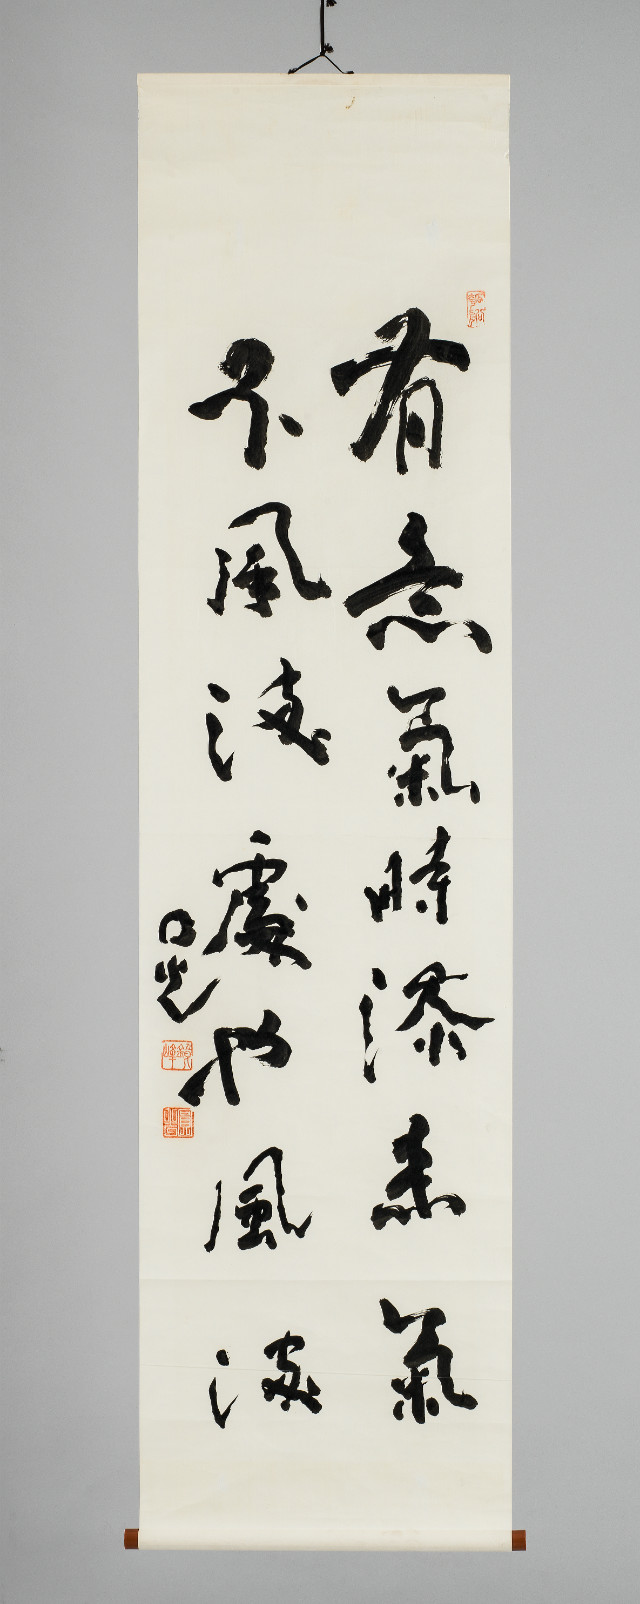 有意氣時添意氣
不風流處也風流